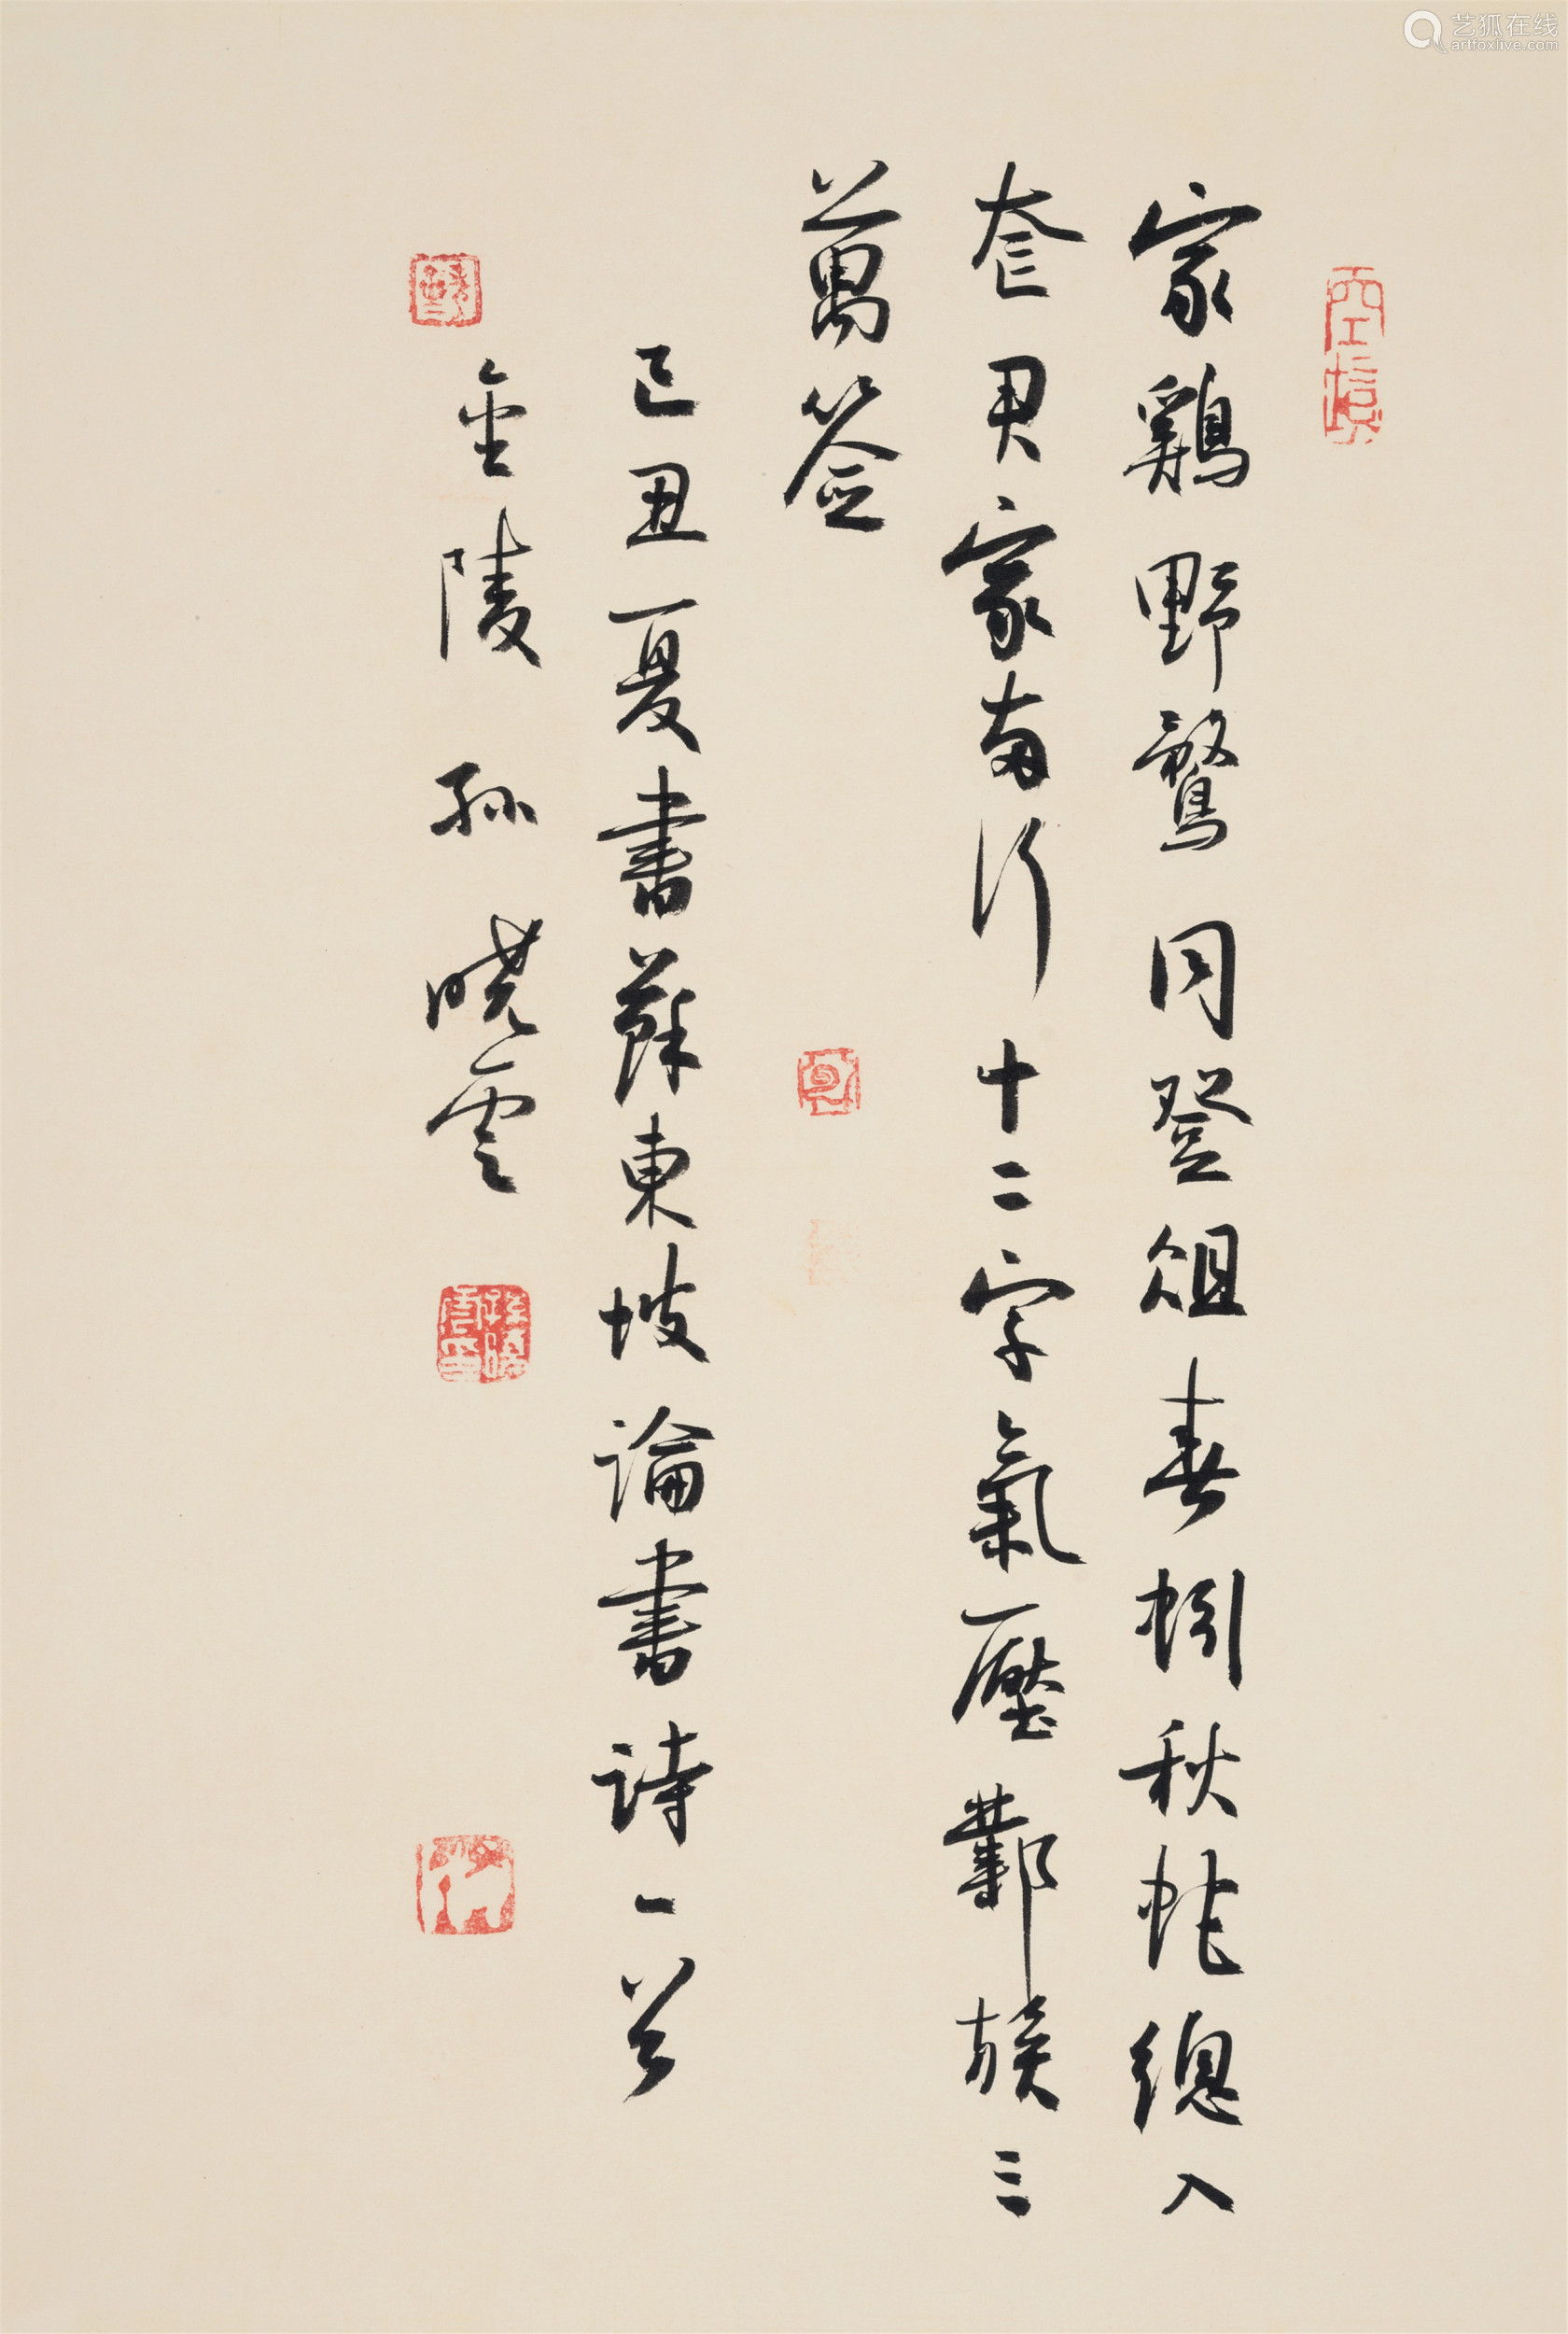 家鷄野鶩同登俎春蚓秋蛇總入
奁君家兩行十二字氣壓鄴矦三
萬签
己丑夏書蘇東坡論書詩一首
金陵孫曉雲
艺狐在线
artfoxlive.com